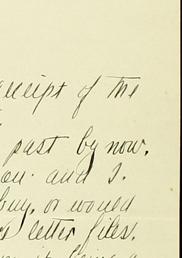 receipt of the
past by now.
and I.
buy, or would
letter files.